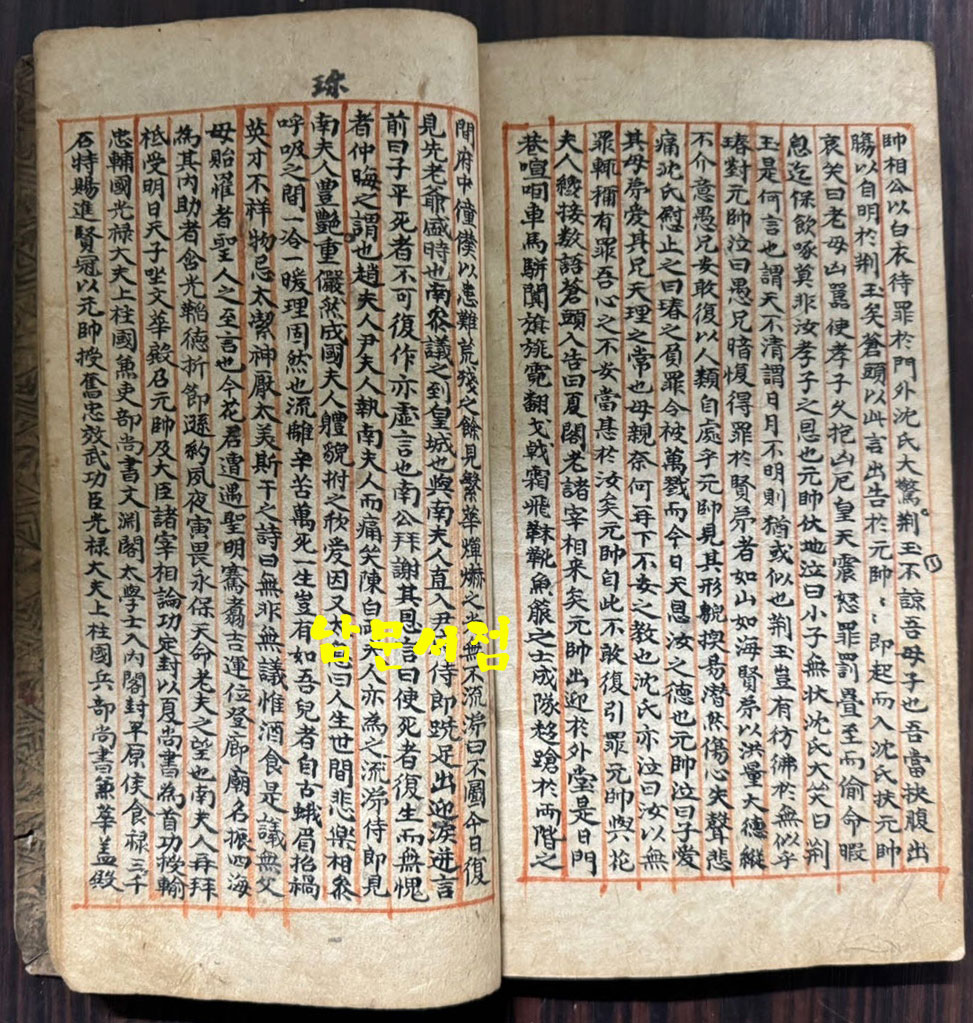 帥相公以白衣待罪於門外沈氏大驚荊玉不諒吾母子也吾當抉腹出
膓以自明於荊玉矣蒼頭以此言出告於元帥〻即起而入沈氏扶元帥
哀哭曰老母凶嚚使孝子久抱凶厄皇天震怒罪罰疊至而偷命暇
息迄保飲啄莫非汝孝子之恩也元帥伏地泣曰小子無狀沈氏大哭曰荊
玉是何言也謂天不清謂日月不明則猶或似也荊玉豈有彷彿於無似乎
瑃對元帥泣曰愚兄暗愎得罪於賢弟者如山如海賢弟以洪量大德縱
不介意愚兄安敢復以人類自處乎元帥見其形貌換易潸然傷心失聲悲
痛沈氏慰止之曰瑃之負罪今被萬戮而今日天恩汝之德也元帥泣曰子愛
其母弟愛其兄天理之常也母親奈何再下不安之教也沈氏亦泣曰汝以無
罪輒稱有罪吾心之不安當甚於汝矣元帥自此不敢復引罪元帥與花
夫人纔接数語蒼頭入告曰夏閣老諸宰相来矣元帥出迎於外堂是日門
巷喧咽車馬騈闐旗旄霓翻戈戟霜飛靺鞈魚箙之士成隊趍蹌於兩階之
珎
間府中僮僕以患難荒殘之餘見繁華燀爀之光無不流涕曰不圖今日復
見先老爺盛時也南叅議之到皇城也與南夫人直入尹府侍郎跣足出迎淚迸言
前曰子平死者不可復作亦虛言也南公拜謝其恩言曰使死者復生而無愧
者仲晦之謂也趙夫人尹夫人執南夫人而痛哭陳白夫人亦為之流涕侍郎見
南夫人豊艶重儼然成國夫人體貌拊之欣愛因又大白曰人生世間悲樂相叅
呼吸之間一冷一暖理固然也流離辛苦萬死一生豈有如吾兒者自古蛾眉招禍
英才不祥物忌太潔神厭太美斯干之詩曰無非無議惟酒食是議無父
母貽罹者聖人之至言也今花君遭遇聖明騫翥吉運位登廊廟名振四海
為其内助者含光韜德折節遜約夙夜寅畏永保天命老夫之望也南夫人再拜
祗受明日天子坐文華殿召元帥及大臣諸宰相論功定封以夏尚書為首功授輸
忠輔國光禄大夫上柱國兼吏部尚書文淵閣太學士入内閣封平原侯食禄三千
石特賜進賢冠以元帥授奮忠效武功臣光禄大夫上柱國兵部尚書兼華盖殿
남문서점